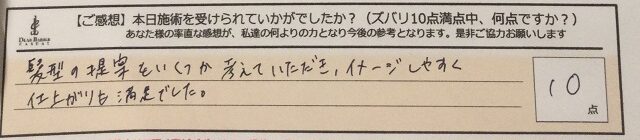 【ご感想】本日施術を受けられていかがでしたか？（ズバリ10点満点中、何点ですか？）
あなた様の率直な感想が、私達の何よりの力となり今後の参考となります。是非ご協力お願いします
DEAR BARBER
髪型の提案をいくつか考えていただき、イメージしやすく
仕上がりも満足でした。
10
点